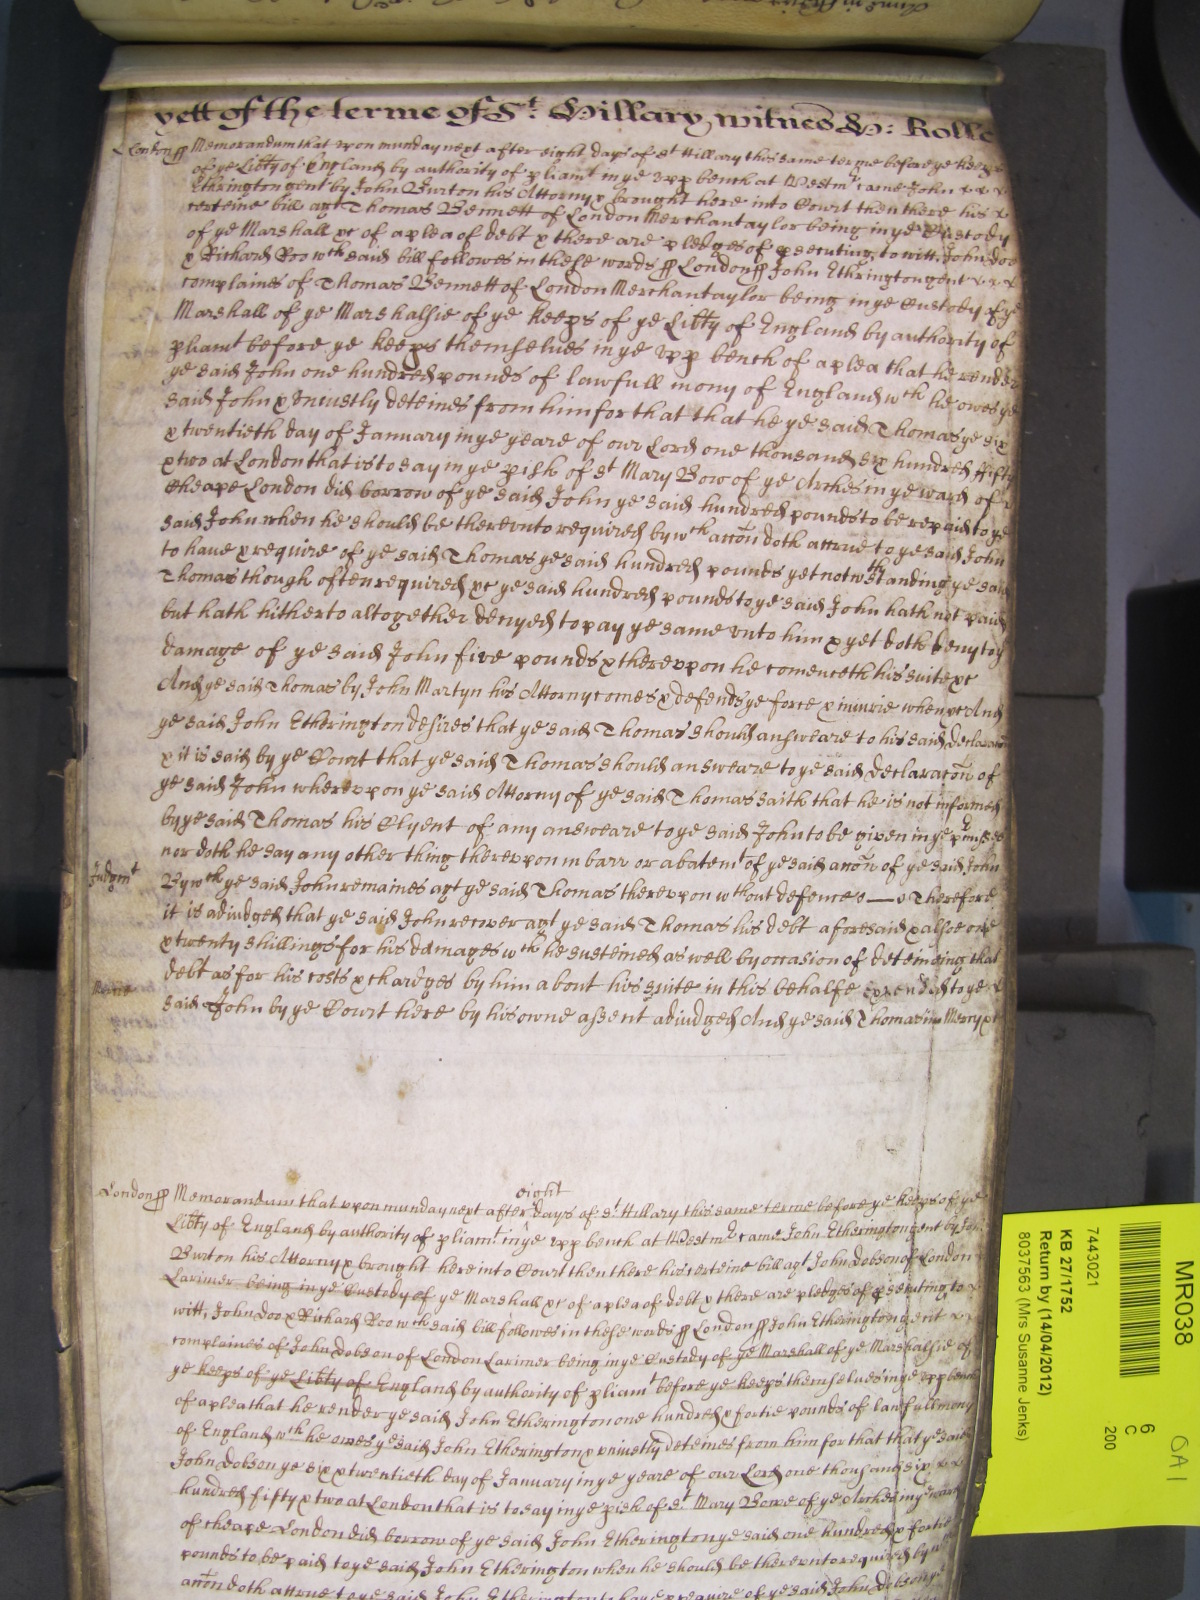 yett of the terme of St. Hillary witnes &c: Rolle
London ss Memorandum that vpon munday next after eight days of St Hillary this same terme before ye keeps
of ye Libty of England by authority of pliamt in ye vpp bench at Westmr came John x x x
Ethrington gent by John Burton his Attorny & brought here into Court then there his x
certeine bill agt Thomas Bennett of London Merchantaylor being in ye Custody
of ye Marshall &c of a plea of debt & there are pledges of psecuting, to witt, John Doo
& Richard Roo wch said bill followes in these words ss London ss John Ethrington gent x x x
complaines of Thomas Bennett of London Merchantaylor being in ye Custody of ye
Marshall of ye Marshalsie of ye keeps of ye Libty of England by authority of
pliamt before ye keeps themselues in ye vpp bench of a plea that he render
ye said John one hundred pounds of lawfull mony of England wch he owes ye
said John & vniustly deteines from him for that that he ye said Thomas ye six
& twentieth day of January in ye yeare of our Lord one thousand six hundred fifty
& two at London that is to say in ye pish of St Mary Bow of ye Arches in ye ward of
Cheape London did borrow of ye said John ye said hundred pounds to be repaid to ye
said John when he should be therevnto required by wch accon doth accrue to ye said John
to haue & require of ye said Thomas ye said hundred pounds yet notwthstanding ye said
Thomas though often required &c ye said hundred pounds to ye said John hath not paid
but hath hitherto altogether denyed to pay ye same vnto him & yet doth deny to ye
damage of ye said John five pounds & therevpon he comenceth his suite &c
And ye said Thomas by John Martyn his Attorny comes & defends ye force & iniurie when &c And
ye said John Etherington desires that ye said Thomas should answeare to his said declaracon
& it is said by ye Court that ye said Thomas should answeare to ye said declaracon of
ye said John wherevpon ye said Attorny of ye said Thomas saith that he is not informed
by ye said Thomas his Clyent of any answeare to ye said John to be given in ye pmisses
nor doth he say any other thing therevpon in barr or abatemt of ye said accon of ye said John
Judgmt By wch ye said John remaines agt ye said Thomas therevpon wthout defence &c — Therefore
it is adiudged that ye said John recover agt ye said Thomas his debt aforesaid & alsoe one
& twenty shillings for his damages wch he susteined as well by occasion of deteineing that
Mercie debt as for his costs & chardges by him about his suite in this behalfe expended to ye x
said John by ye Court here by his owne assent adiudged And ye said Thomas in Mercy &c
London ss Memorandum that vpon munday next after eight days of St Hillary this same terme before ye keeps of ye
Libty of England by authority of pliamt in ye vpp bench at Westmr came John Etherington gent by John
Burton his Attorny & brought here into Court then there his certeine bill agt John Dobson of London
Larimer being in ye Custody of ye Marshall &c of a plea of debt & there are pledges of psecuting to x
witt, John Doo & Richard Roo wch said bill followes in these words ss London ss John Etherington gent x x
complaines of John Dobson of London Larimer being in ye Custody of ye Marshall of ye Marshalsie of
ye keeps of ye Libty of England by authority of pliamt before ye keeps themselues in ye vpp bench
of a plea that he render ye said John Etherington one hundred & fortie pounds of lawfull mony
of England wch he owes ye said John Etherington & vniustly deteines from him for that that ye said
John Dobson ye six & twentieth day of January in ye yeare of our Lord one thousand six x x
hundred fifty & two at London that is to say in ye pish of St Mary Bowe of ye Arches in ye ward
of cheape London did borrow of ye said John Etherington ye said one hundred & fortie
pounds to be paid to ye said John Etherington when he should be therevnto required by wch
accon doth accrue to ye said John Etherington to haue & require of ye said John Dobson ye
MR038
6
C
200
OA1
7443021
KB 27/1752
Return by (14/04/2012)
8037563 (Mrs Susanne Jenks)